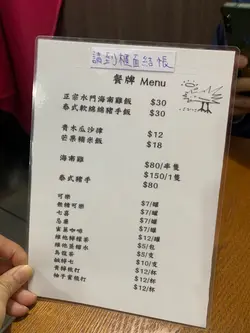 請到櫃面結帳
餐牌 Menu
正宗水門海南雞飯 $30
泰式軟綿綿豬手飯 $30
青木瓜沙律 $12
芒果糯米飯 $18
海南雞 $80/半隻
$150/1隻
泰式豬手 $80
可樂 $7/罐
無糖可樂 $7/罐
七喜 $7/罐
忌廉 $7/罐
雀巢咖啡 $12/罐
維他檸檬茶 $5/包
維他荳奶 $5/支
烏龍茶 $10/支
鹹檸七 $12/杯
青檸梳打 $12/杯
柚子蜜梳打 $12/杯